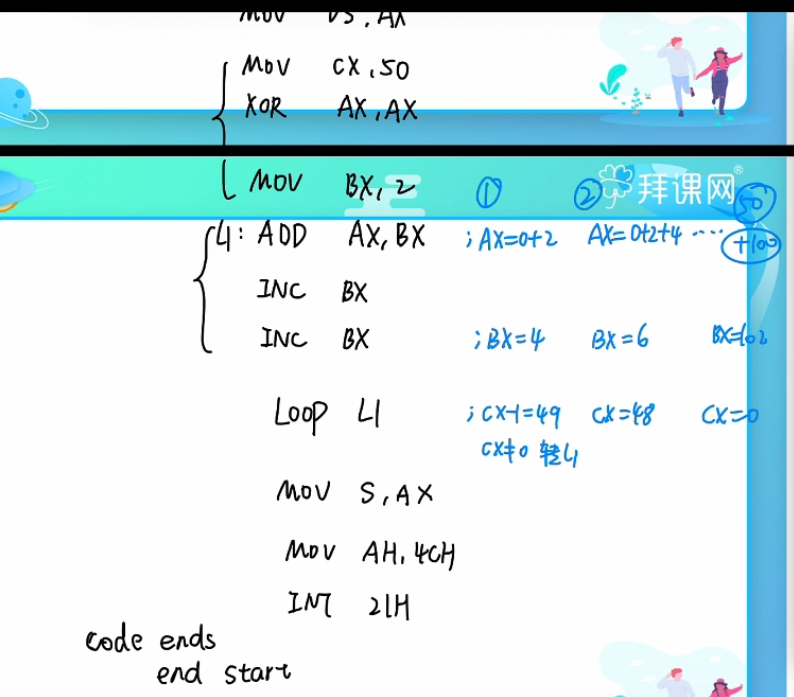 MOV DS,AX
MOV CX,50
XOR AX,AX
MOV BX,2 ① ② 拜课网® 50
L1: ADD AX,BX ;AX=0+2 AX=0+2+4 ···· +100
INC BX
INC BX ;BX=4 BX=6 BX=102
LOOP L1 ;CX-1=49 CX=48 CX=0
CX≠0 转L1
MOV S,AX
MOV AH,4CH
INT 21H
code ends
end start